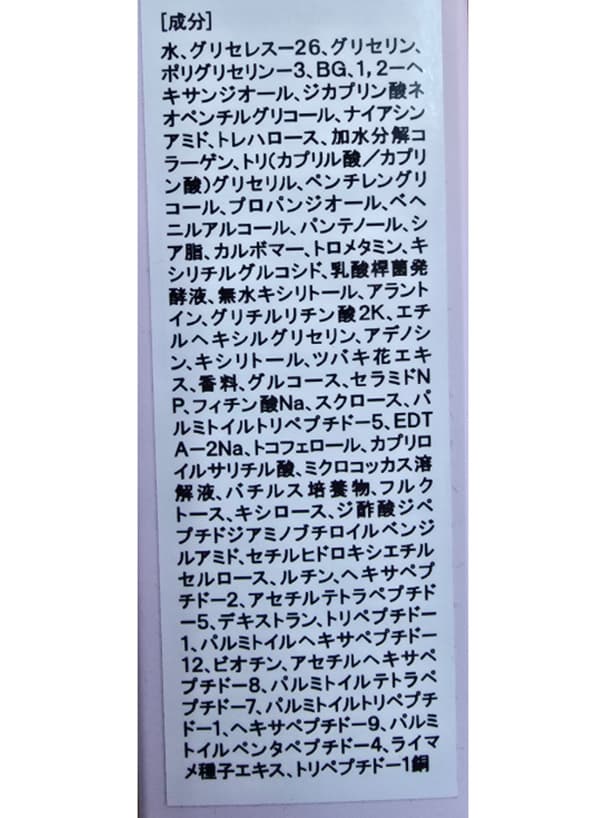 [成分]
水、グリセレスー26、グリセリン、
ポリグリセリンー3、BG、1,2ーヘ
キサンジオール、ジカプリン酸ネ
オペンチルグリコール、ナイアシン
アミド、トレハロース、加水分解コ
ラーゲン、トリ(カプリル酸／カプリ
ン酸)グリセリル、ペンチレングリ
コール、プロパンジオール、ベヘ
ニルアルコール、パンテノール、シ
ア脂、カルボマー、トロメタミン、キ
シリチルグルコシド、乳酸桿菌発
酵液、無水キシリトール、アラント
イン、グリチルリチン酸2K、エチ
ルヘキシルグリセリン、アデノシ
ン、キシリトール、ツバキ花エキ
ス、香料、グルコース、セラミドN
P、フィチン酸Na、スクロース、パ
ルミトイルトリペプチドー5、EDT
Aー2Na、トコフェロール、カプリロ
イルサリチル酸、ミクロコッカス溶
解液、バチルス培養物、フルク
トース、キシロース、ジ酢酸ジペ
プチドジアミノブチロイルベンジ
ルアミド、セチルヒドロキシエチル
セルロース、ルチン、ヘキサペプ
チドー2、アセチルテトラペプチド
ー5、デキストラン、トリペプチドー
1、パルミトイルヘキサペプチドー
12、ビオチン、アセチルヘキサペ
プチドー8、パルミトイルテトラペ
プチドー7、パルミトイルトリペプチ
ドー1、ヘキサペプチドー9、パルミ
トイルペンタペプチドー4、ライマ
メ種子エキス、トリペプチドー1銅